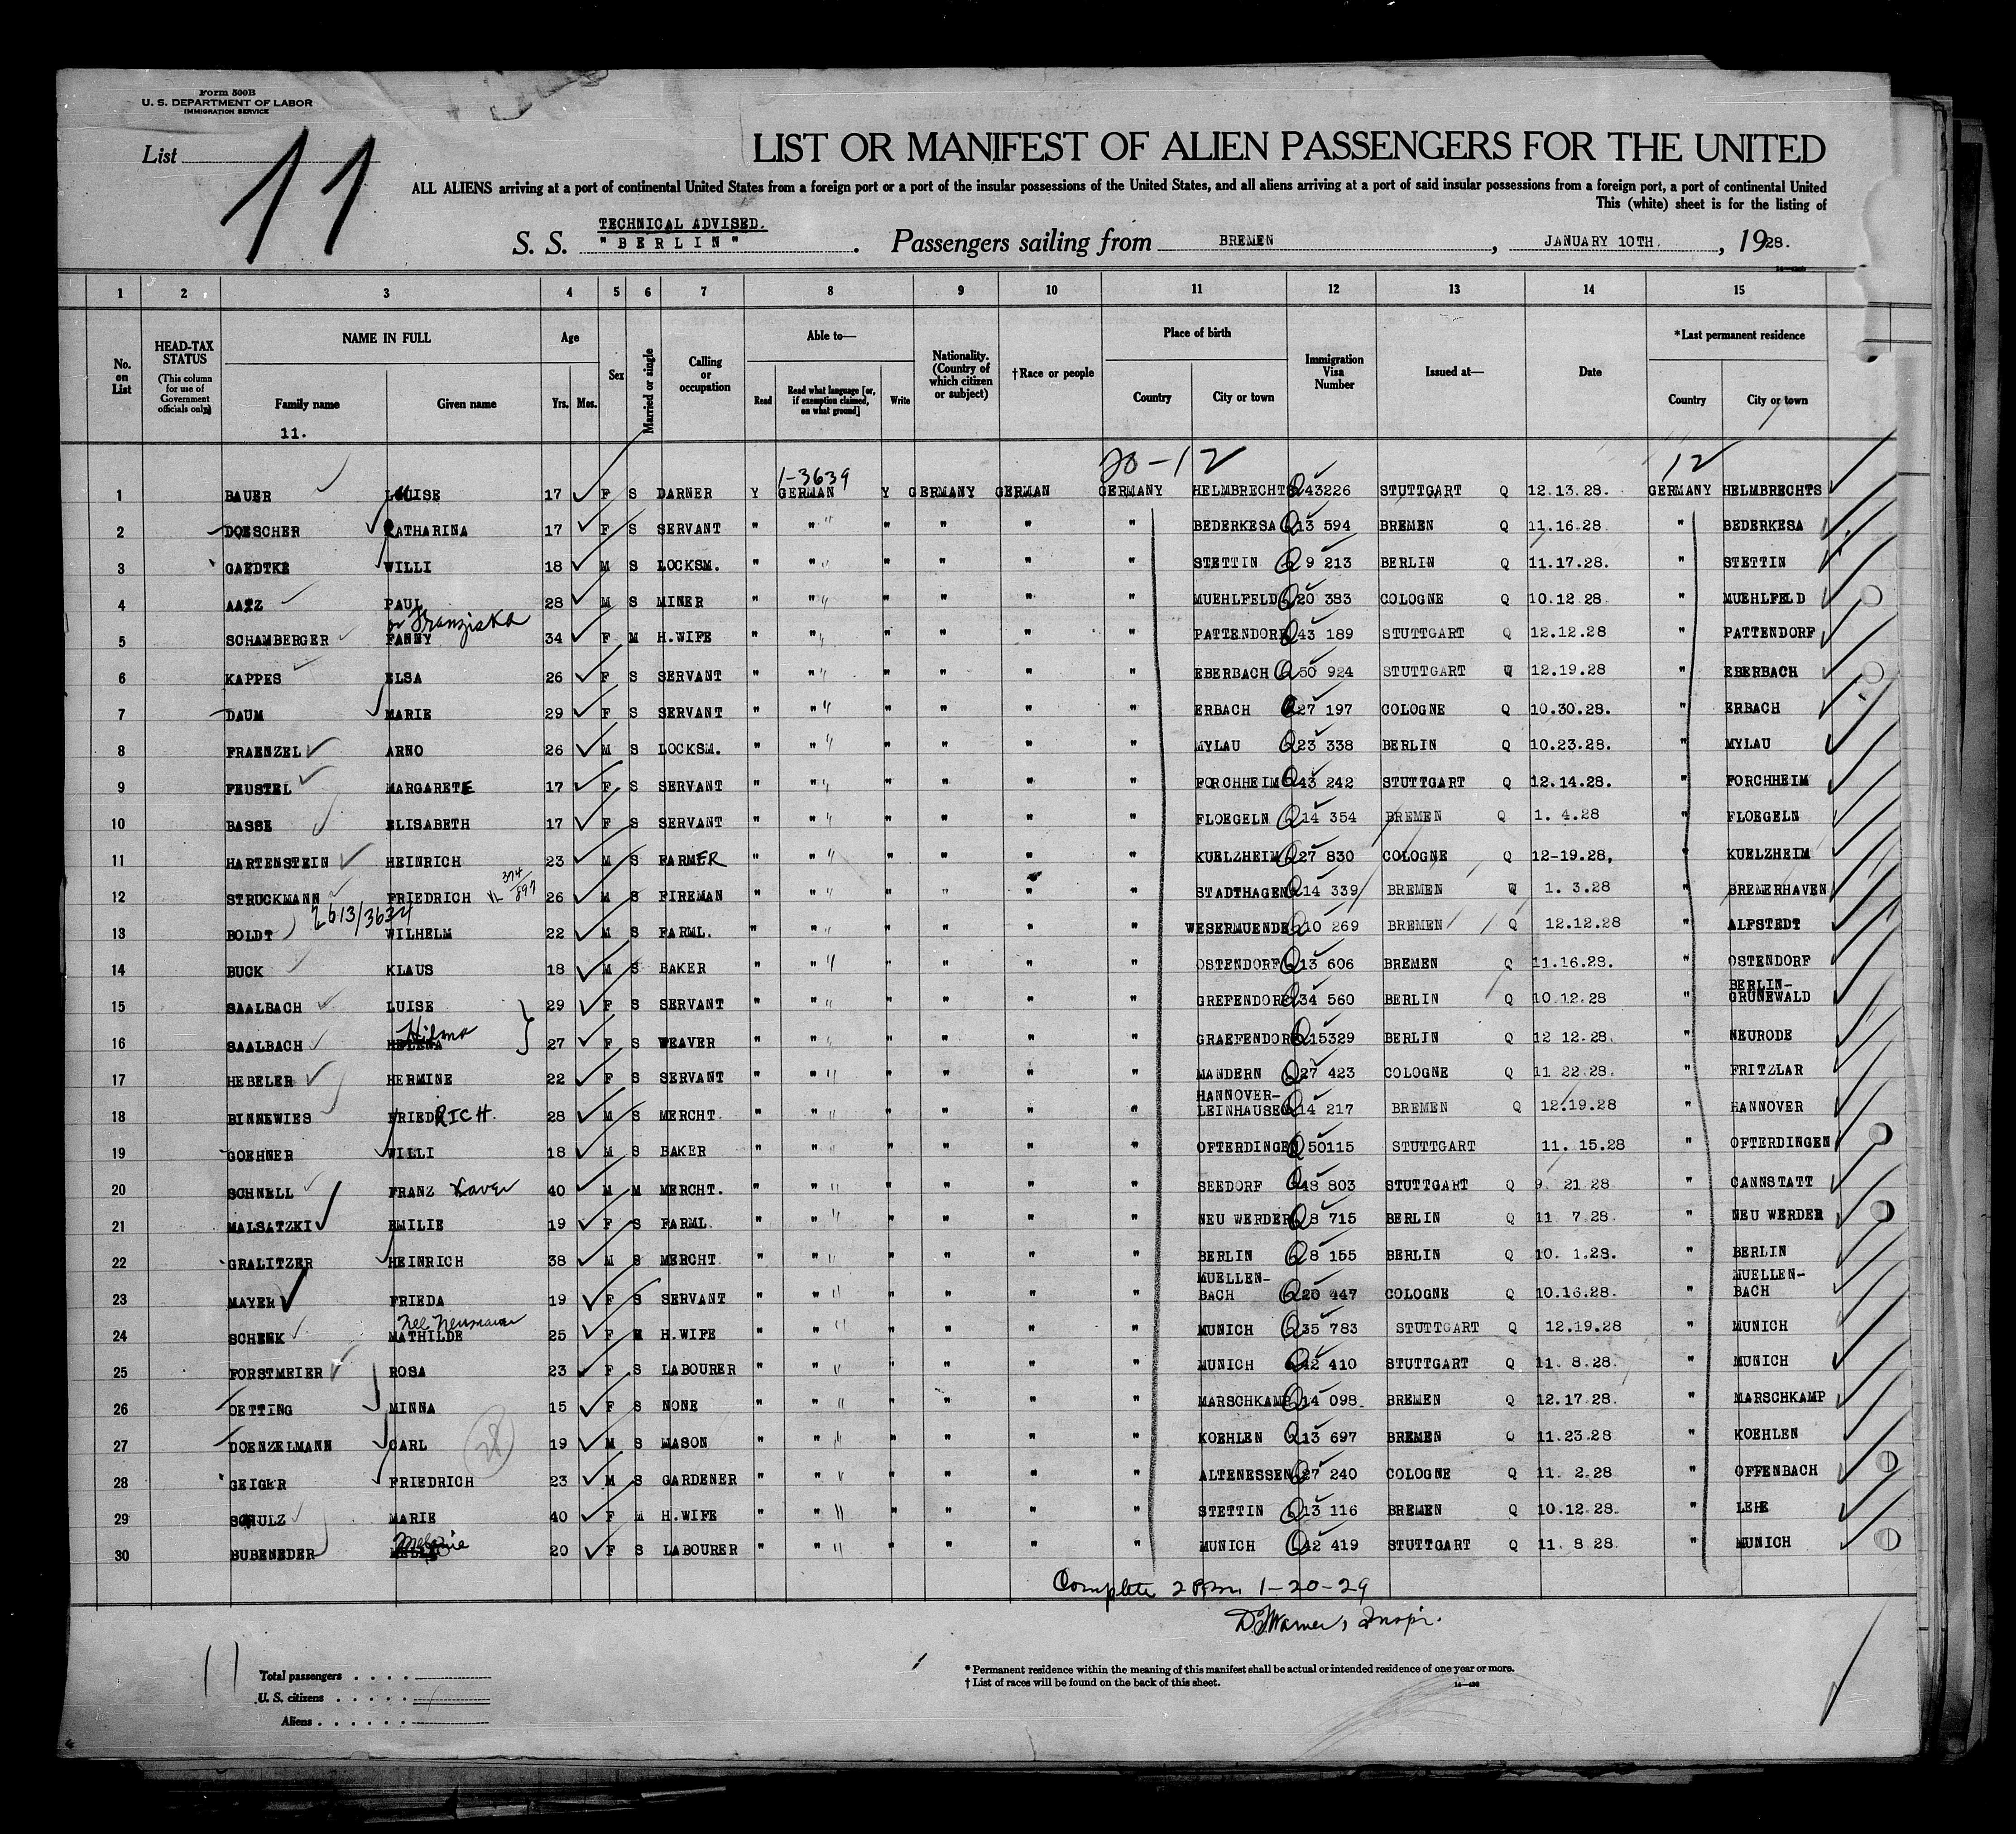 Form 500B
U. S. DEPARTMENT OF LABOR
IMMIGRATION SERVICE
List 11
LIST OR MANIFEST OF ALIEN PASSENGERS FOR THE UNITED
ALL ALIENS arriving at a port of continental United States from a foreign port or a port of the insular possessions of the United States, and all aliens arriving at a port of said insular possessions from a foreign port, a port of continental United
This (white) sheet is for the listing of
TECHNICAL ADVISED.
S. S. "BERLIN". Passengers sailing from BREMEN, JANUARY 10TH., 1928.
1 2 3 4 5 6 7 8 9 10 11 12 13 14 15
No. on List HEAD-TAX STATUS (This column for use of Government officials only) NAME IN FULL Family name Given name Age Yrs. Mos. Sex Married or single Calling or occupation Able to— Read Read what language [or, if exemption claimed, on what ground] Write Nationality. (Country of which citizen or subject) †Race or people Place of birth Country City or town Immigration Visa Number Issued at— Date *Last permanent residence Country City or town
11.
1-3639 20-12 12
1 BAUER LOUISE 17 F S DARNER Y GERMAN Y GERMANY GERMAN GERMANY HELMBRECHTS Q 43226 STUTTGART Q 12.13.28. GERMANY HELMBRECHTS
2 DOESCHER KATHARINA 17 F S SERVANT " " " " " " BEDERKESA Q 13 594 BREMEN Q 11.16.28 " BEDERKESA
3 GAEDTKE WILLI 18 M S LOCKSM. " " " " " " STETTIN Q 9 213 BERLIN Q 11.17.28. " STETTIN
4 AATZ PAUL 28 M S MINER " " " " " " MUEHLFELD Q 20 383 COLOGNE Q 10.12.28 " MUEHLFELD
or Franziska
5 SCHAMBERGER FANNY 34 F M H.WIFE " " " " " " PATTENDORF Q 43 189 STUTTGART Q 12.12.28 " PATTENDORF
6 KAPPES ELSA 26 F S SERVANT " " " " " " EBERBACH Q 50 924 STUTTGART Q 12.19.28 " EBERBACH
7 DAUM MARIE 29 F S SERVANT " " " " " " ERBACH Q 27 197 COLOGNE Q 10.30.28. " ERBACH
8 FRAENZEL ARNO 26 M S LOCKSM. " " " " " " MYLAU Q 23 338 BERLIN Q 10.23.28. " MYLAU
9 FEUSTEL MARGARETE 17 F S SERVANT " " " " " " FORCHHEIM Q 43 242 STUTTGART Q 12.14.28. " FORCHHEIM
10 BASSE ELISABETH 17 F S SERVANT " " " " " " FLOEGELN Q 14 354 BREMEN Q 1. 4.28 " FLOEGELN
11 HARTENSTEIN HEINRICH 23 M S FARMER " " " " " " KUELZHEIM Q 27 830 COLOGNE Q 12-19.28, " KUELZHEIM
12 STRUCKMANN FRIEDRICH 374/897 26 M S FIREMAN " " " " " " STADTHAGEN Q 14 339 BREMEN Q 1. 3.28 " BREMERHAVEN
2613/3634
13 BOLDT WILHELM 22 M S FARML. " " " " " " WESERMUENDE Q 10 269 BREMEN Q 12.12.28 " ALFSTEDT
14 BUCK KLAUS 18 M S BAKER " " " " " " OSTENDORF Q 13 606 BREMEN Q 11.16.28. " OSTENDORF
15 SAALBACH LUISE 29 F S SERVANT " " " " " " GREFENDORF Q 34 560 BERLIN Q 10.12.28 " BERLIN-GRUNEWALD
Hilma
16 SAALBACH HELENA 27 F S WEAVER " " " " " " GRAEFENDORF Q 15329 BERLIN Q 12 12.28. " NEURODE
17 HEBELER HERMINE 22 F S SERVANT " " " " " " MANDERN Q 27 423 COLOGNE Q 11 22 28. " FRITZLAR
18 BINNEWIES FRIEDRICH. 28 M S MERCHT. " " " " " " HANNOVER-LEINHAUSEN Q 14 217 BREMEN Q 12.19.28 " HANNOVER
19 GOEHNER WILLI 18 M S BAKER " " " " " " OFTERDINGEN Q 50115 STUTTGART 11. 15.28 " OFTERDINGEN
20 SCHNELL FRANZ Xaver 40 M M MERCHT. " " " " " " SEEDORF Q 48 803 STUTTGART Q 9. 21 28 " CANNSTATT
21 MALSATZKI EMILIE 19 F S FARML. " " " " " " NEU WERDER Q 8 715 BERLIN Q 11 7 28. " NEU WERDER
22 GRALITZER HEINRICH 38 M S MERCHT. " " " " " " BERLIN Q 8 155 BERLIN Q 10. 1.28. " BERLIN
23 MAYER FRIEDA 19 F S SERVANT " " " " " " MUELLEN-BACH Q 20 447 COLOGNE Q 10.16.28. " MUELLEN-BACH
nee Neumann
24 SCHENK MATHILDE 25 F M H.WIFE " " " " " " MUNICH Q 35 783 STUTTGART Q 12.19.28 " MUNICH
25 FORSTMEIER ROSA 23 F S LABOURER " " " " " " MUNICH Q 42 410 STUTTGART Q 11. 8.28. " MUNICH
26 OETTING MINNA 15 F S NONE " " " " " " MARSCHKAMP Q 14 098. BREMEN Q 12.17 28. " MARSCHKAMP
27 DOENZELMANN CARL 28 19 M S MASON " " " " " " KOEHLEN Q 13 697 BREMEN Q 11.23.28 " KOEHLEN
28 GEIGER FRIEDRICH 23 M S GARDENER " " " " " " ALTENESSEN Q 27 240 COLOGNE Q 11. 2.28 " OFFENBACH
29 SCHULZ MARIE 40 F M H.WIFE " " " " " " STETTIN Q 13 116 BREMEN Q 10.12.28. " LEHE
Melanie
30 BUBENEDER 20 F S LABOURER " " " " " " MUNICH Q 42 419 STUTTGART Q 11. 8 28. " MUNICH
Complete 2 Pm 1-20-29
Warner, Inspr.
11
Total passengers . . . .
U. S. citizens . . . . .
Aliens . . . . . .
* Permanent residence within the meaning of this manifest shall be actual or intended residence of one year or more.
† List of races will be found on the back of this sheet.